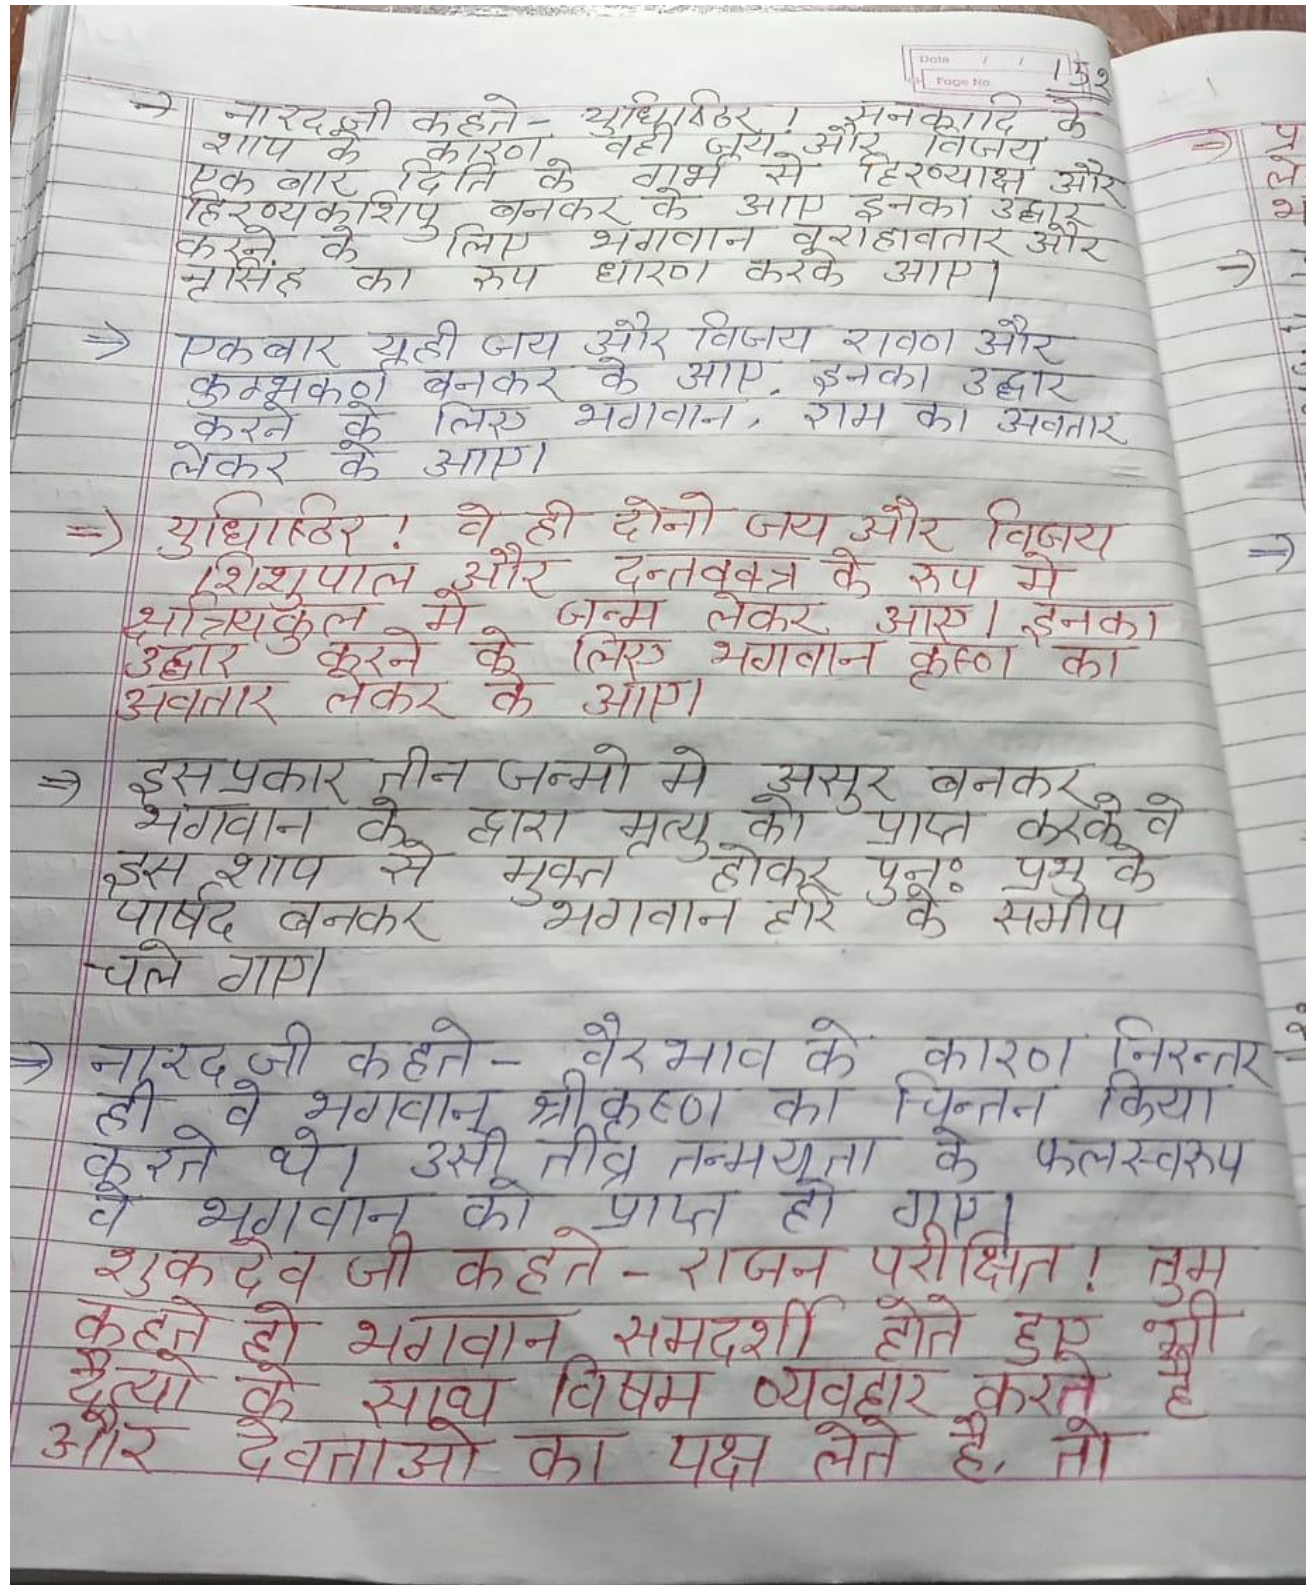 Date / /
Page No.
152
→ नारद जी कहते - युधिष्ठिर! सनकादि के
शाप के कारण वही जय और विजय
एक बार दिति के गर्भ से हिरण्याक्ष और
हिरण्यकशिपु बनकर के आए इनका उद्धार
करने के लिए भगवान वराहावतार और
नृसिंह का रुप धारण करके आए।
⇒ एकबार यही जय और विजय रावण और
कुम्भकर्ण बनकर के आए, इनका उद्धार
करने के लिए भगवान, राम का अवतार
लेकर के आए।
⇒ युधिष्ठिर! वे ही दोनो जय और विजय
शिशुपाल और दन्तवक्त्र के रुप मे
क्षत्रियकुल मे जन्म लेकर आए। इनका
उद्धार करने के लिए भगवान कृष्ण का
अवतार लेकर के आए।
⇒ इस प्रकार तीन जन्मो मे असुर बनकर
भगवान के द्वारा मृत्यु को प्राप्त करके वे
इस शाप से मुक्त होकर पुनः प्रभु के
पार्षद बनकर भगवान हरि के समीप
चले गए।
⇒ नारद जी कहते - वैर भाव के कारण निरन्तर
ही वे भगवान श्रीकृष्ण का चिन्तन किया
करते थे। उसी तीव्र तन्मयता के फलस्वरुप
वे भगवान को प्राप्त हो गए।
शुकदेव जी कहते - राजन परीक्षित! तुम
कहते हो भगवान समदर्शी होते हुए भी
दैत्यो के साथ विषम व्यवहार करते है
और देवताओ का पक्ष लेते है, तो